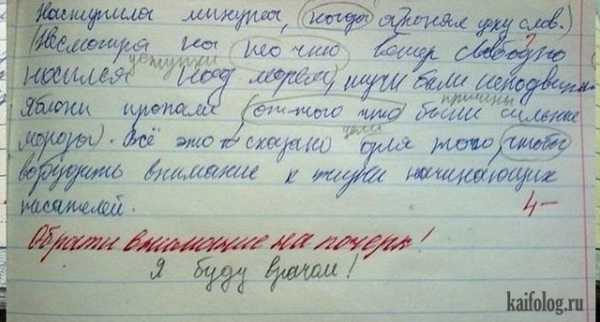 наступила минута, (когда я понял цену слов.)
(Несмотря на то что) ветер свободно
уступки
носился над морем, тучи были неподвижн
причины
Яблони пропали (оттого что) были сильные
цели
морозы). Всё это сказано для того, чтобы
возбудить внимание к жизни начинающих
писателей.
4-
Обрати внимание на почерк!
Я буду врачом!
kaifolog.ru